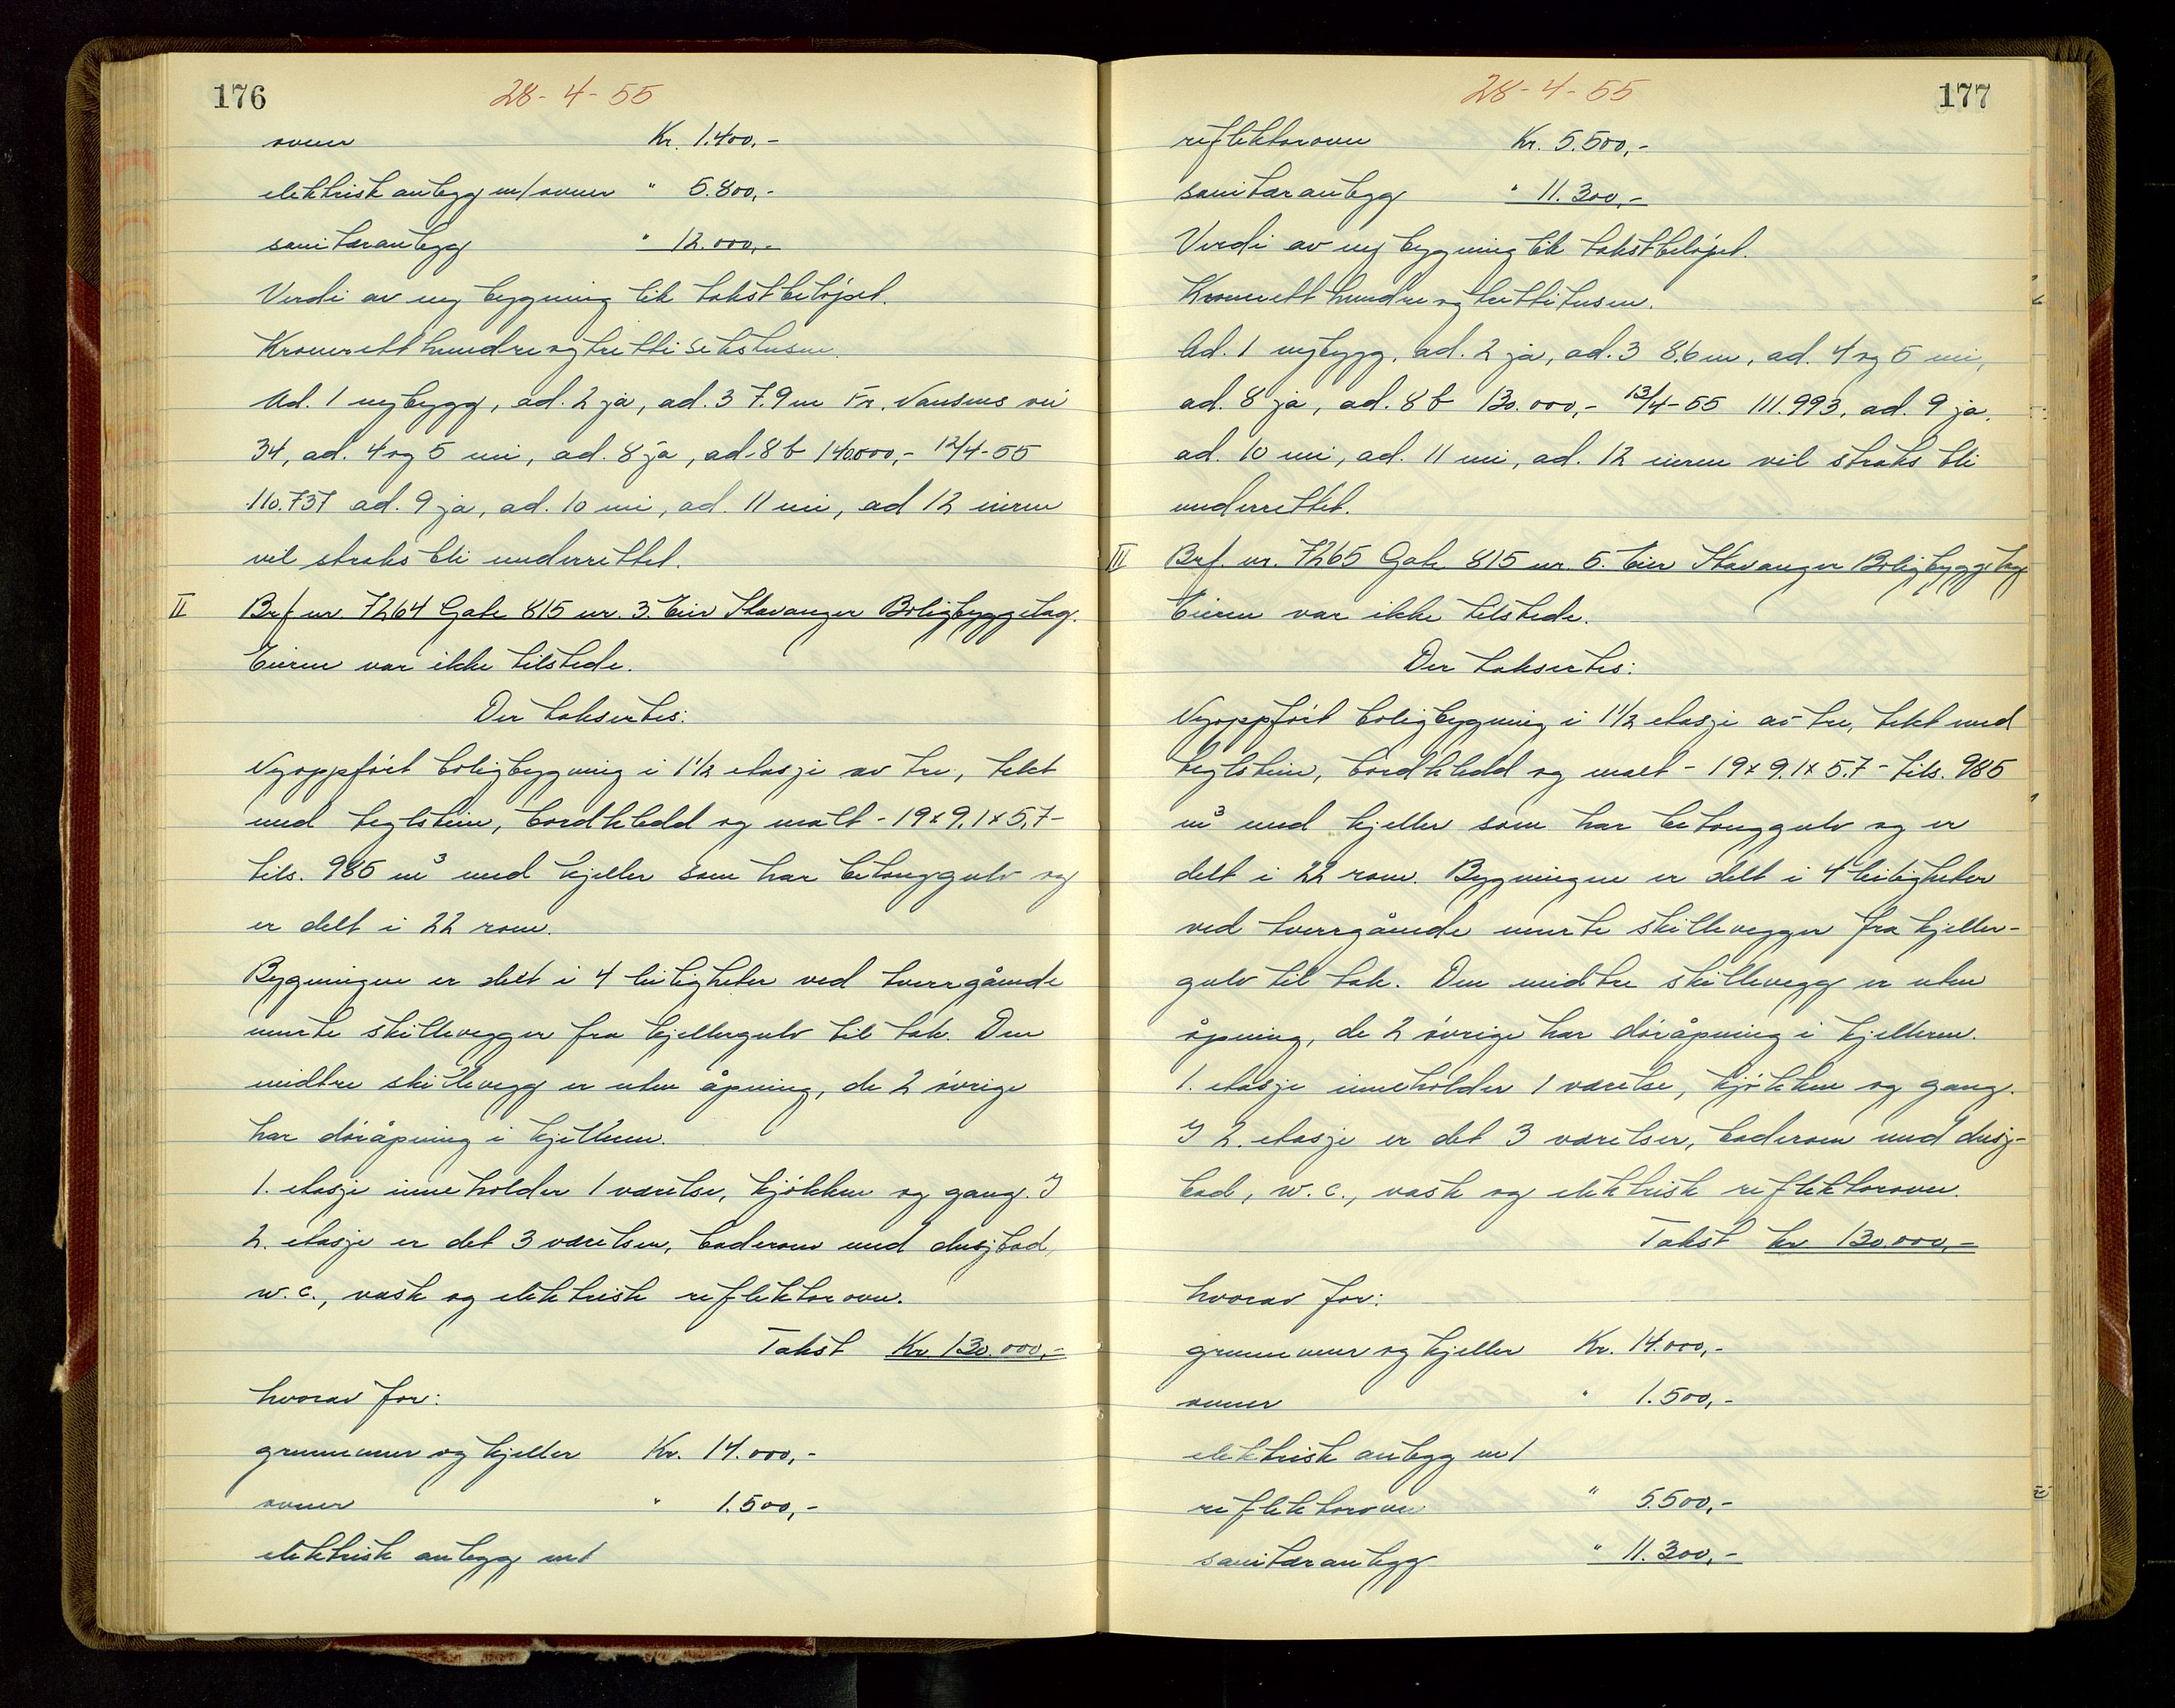 176
28-4-55
ovner Kr. 1.400,-
elektrisk anlegg m/ovner " 5.800,-
sanitæranlegg " 12.000,-
Verdi av ny bygning lik takstbeløpet.
Kroner ett hundre og tretti sekstusen.
Ad. 1 nybygg, ad. 2 ja, ad. 3 7.9 m Fr. Nansens vei
34, ad. 4 og 5 nei, ad. 8 ja, ad. 8 b 140.000,- 12/4-55
110.737 ad. 9 ja, ad. 10 nei, ad. 11 nei, ad 12 eieren
vil straks bli underrettet.
II Brf. nr. 7264 Gate 815 nr. 3. Eier Stavanger Boligbyggelag.
Eieren var ikke tilstede.
Der taksertes:
Nyoppført boligbygning i 1 1/2 etasje av tre, tekt
med teglstein, bordkledd og malt - 19 x 9,1 x 5,7 -
tils. 985 m³ med kjeller som har betonggulv og
er delt i 22 rom.
Bygningen er delt i 4 leiligheter ved tverrgående
murte skillevegger fra kjellergulv til tak. Den
midtre skillevegg er uten åpning, de 2 øvrige
har døråpning i kjelleren.
1. etasje inneholder 1 værelse, kjøkken og gang. I
2. etasje er det 3 værelser, baderom med dusjbad,
w.c., vask og elektrisk reflektorovn.
Takst Kr. 130.000,-
hvorav for:
grunnmur og kjeller Kr. 14.000,-
ovner " 1.500,-
elektrisk anlegg m/
177
28-4-55
reflektorovn Kr. 5.500,-
sanitæranlegg " 11.300,-
Verdi av ny bygning lik takstbeløpet.
Kroner ett hundre og tretti tusen.
Ad. 1 nybygg, ad. 2 ja, ad. 3 8.6 m, ad. 4 og 5 nei,
ad. 8 ja, ad. 8 b 130.000,- 13/4-55 111.993, ad. 9 ja,
ad. 10 nei, ad. 11 nei, ad. 12 eieren vil straks bli
underrettet.
III Brf. nr. 7265 Gate 815 nr. 5. Eier Stavanger Boligbyggelag
Eieren var ikke tilstede.
Der taksertes:
Nyoppført boligbygning i 1 1/2 etasje av tre, tekt med
teglstein, bordkledd og malt - 19 x 9.1 x 5.7 - tils. 985
m³ med kjeller som har betonggulv og er
delt i 22 rom. Bygningen er delt i 4 leiligheter
ved tverrgående murte skillevegger fra kjeller-
gulv til tak. Den midtre skillevegg er uten
åpning, de 2 øvrige har døråpning i kjelleren.
1. etasje inneholder 1 værelse, kjøkken og gang.
I 2. etasje er det 3 værelser, baderom med dusj-
bad, w.c., vask og elektrisk reflektorovn.
Takst kr 130.000,-
hvorav for:
grunnmur og kjeller Kr. 14.000,-
ovner " 1.500,-
elektrisk anlegg m/
reflektorovn " 5.500,-
sanitæranlegg " 11.300,-